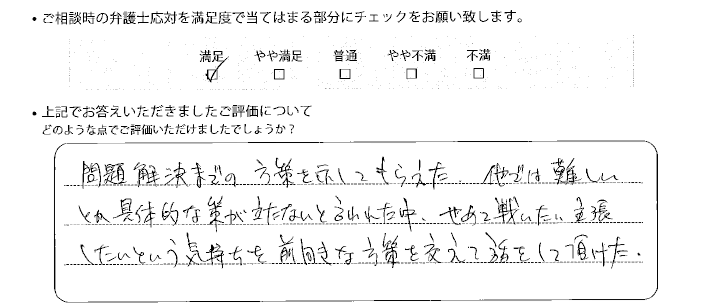 ・ご相談時の弁護士応対を満足度で当てはまる部分にチェックをお願い致します。
満足 やや満足 普通 やや不満 不満
・上記でお答えいただきましたご評価について
どのような点でご評価いただけましたでしょうか?
問題解決までの方策を示してもらえた。他では難しい
とか具体的な策が立たないと言われた中、せめて戦いたい主張
したいという気持ちを前向きな方策を交えて話をして頂けた。